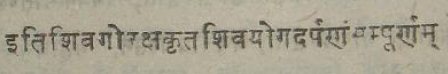 इतिशिवगोरक्षकृतशिवयोगदर्पणंसम्पूर्णम्